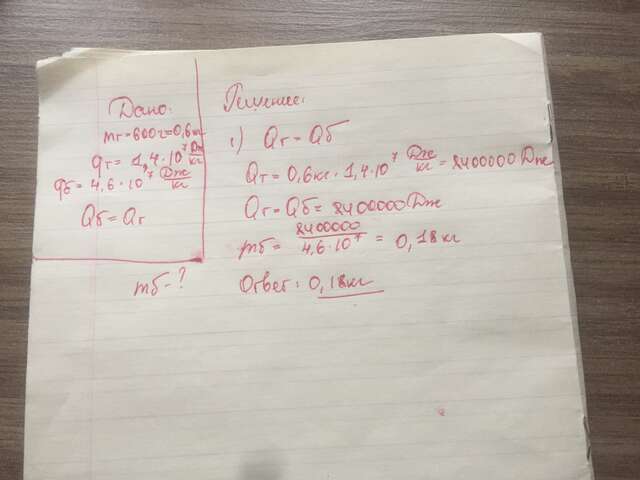 Дано:
mг=600г=0,6кг
qг=1,4·10⁷ Дж/кг
qб=4,6·10⁷ Дж/кг
Qб=Qг
mб-?
Решение:
1) Qг=Qб
Qг=0,6кг·1,4·10⁷ Дж/кг=8400000Дж
Qг=Qб=8400000Дж
mб=8400000/4,6·10⁷=0,18кг
Ответ: 0,18кг